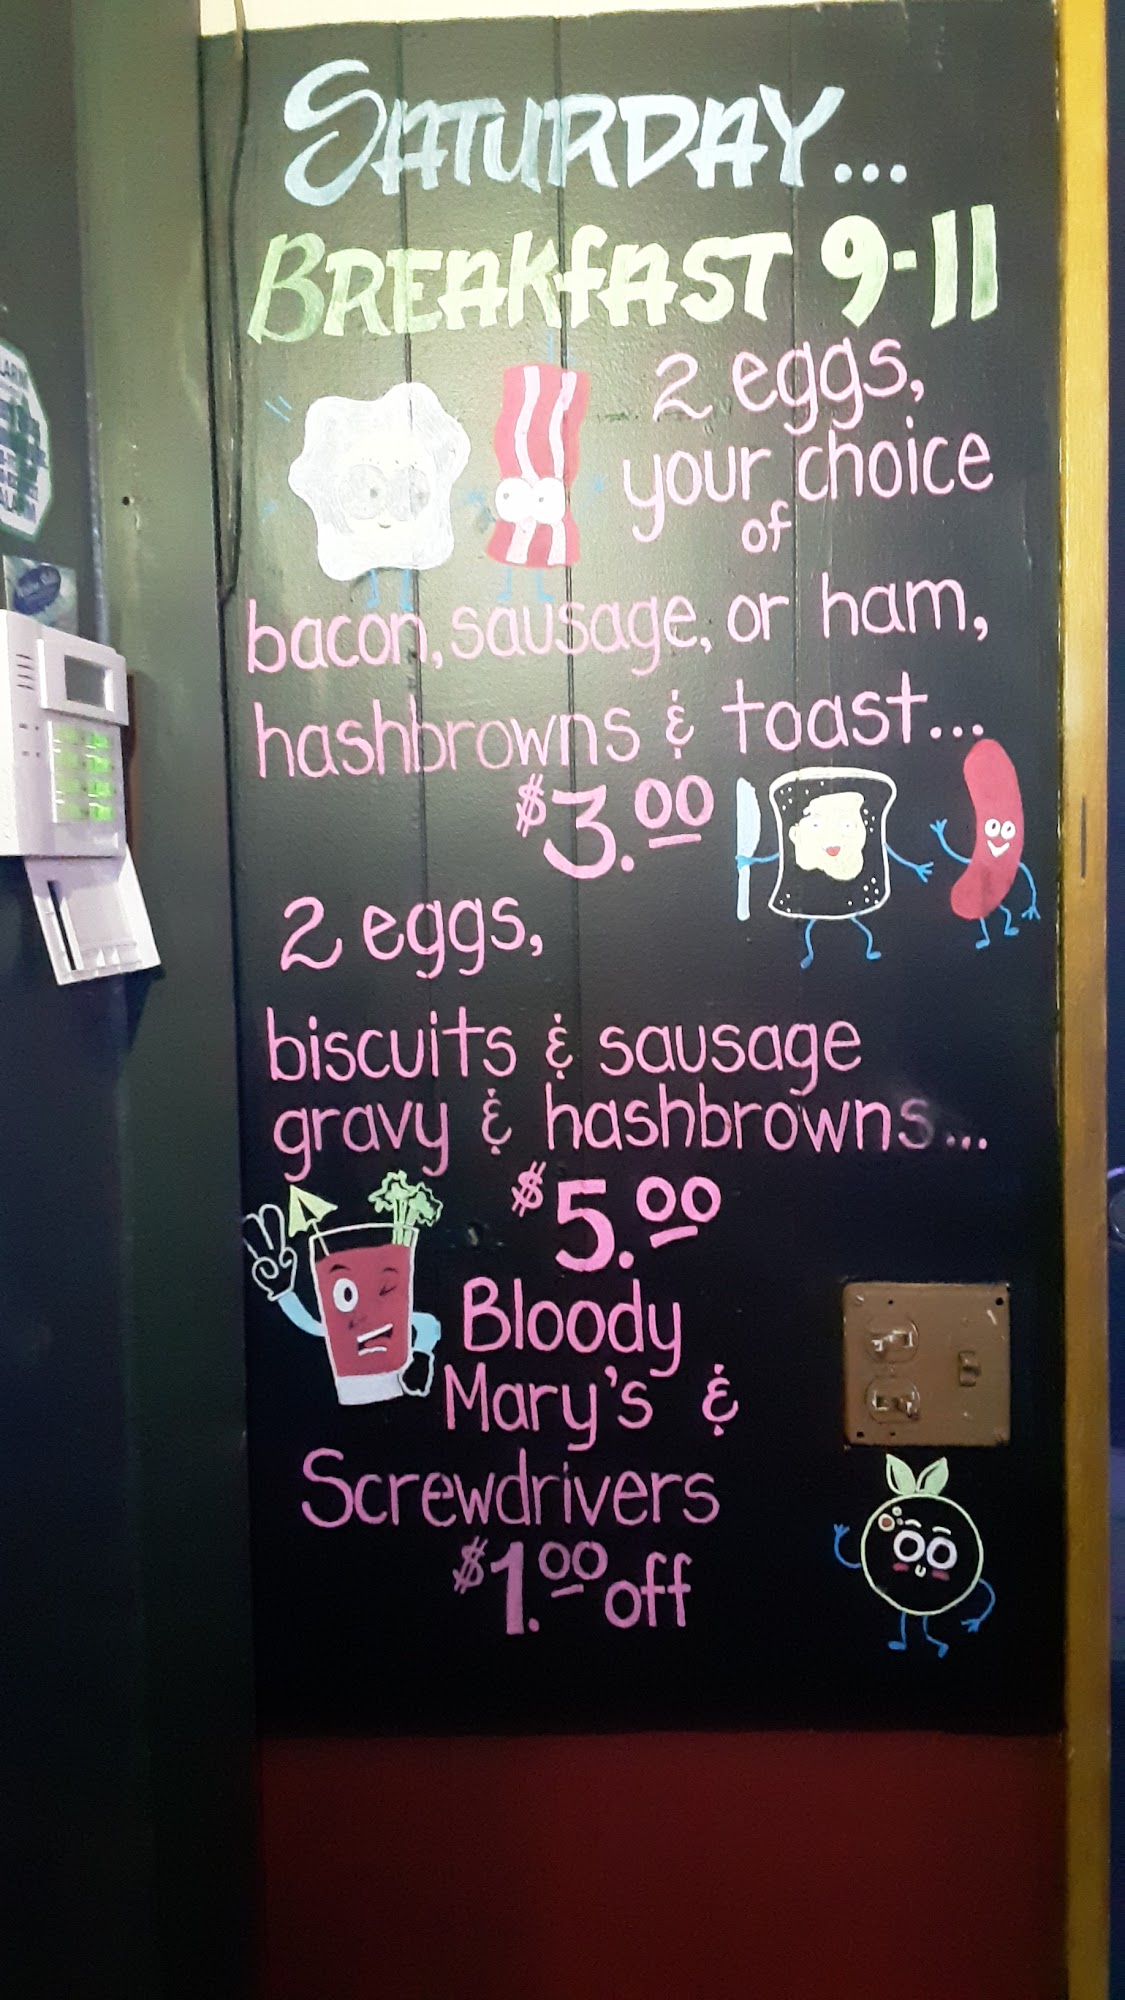 SATURDAY...
BREAKfAST 9-11
2 eggs,
your choice
of
bacon, sausage, or ham,
hashbrowns & toast...
$3.00
2 eggs,
biscuits & sausage
gravy & hashbrowns...
$5.00
Bloody
Mary's &
Screwdrivers
$1.00 off